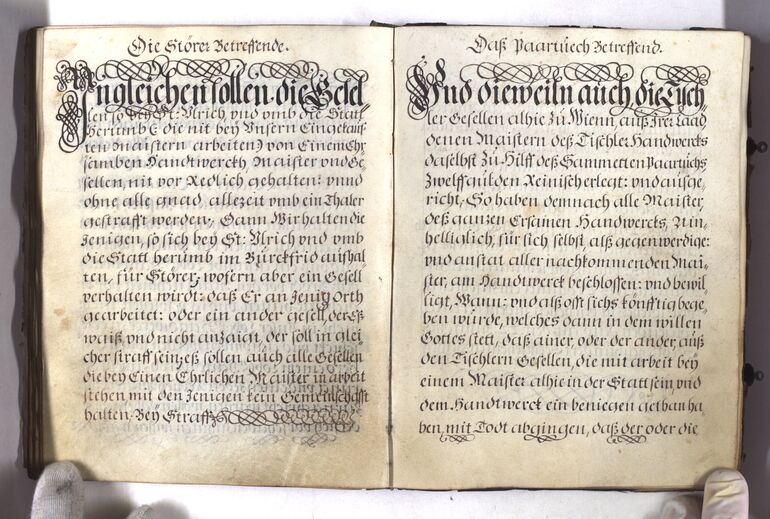 Die Störer Betreffende.
Ingleichen sollen die Gesel-
len so bey St: Ulrich und umb die Statt
herumb (: die nit bey Unsern Eingekauff-
ten Maistern arbeiten) von Einem Ehr
samben Handtwerckh, Maister und Ge-
sellen, nit vor Redlich gehalten: unnd
ohne alle gnad, allezeit umb ein Thaler
gestrafft werden, Dann Wir halten die
Jenigen, so sich bey St: Ulrich und umb
die Statt herumb im Burckfrid aufhal-
ten, für Störer, wofern aber ein Gesell
verhalten wirdt: daß Er an Jenig Orth
gearbeitet: oder ein ander gesell, der Eß
waiß und nicht anzaich, der soll in glei
cher straff sein, eß sollen auch alle Gesellen
die bey Einen Ehrlichen Maister in arbeit
stehen mit den Jenigen kein Gemeinschafft
halten, Bey Straff
Daß Paartuech Betreffend.
Und dieweiln auch die Tisch-
ler Gesellen alhie zu Wienn, auß Irer Laad
denen Maistern deß Tischler Handtwercks
daselbst zu Hilff deß Sammetten Paartuchs
Zwelff gulden Reinisch erlegt: und außge-
richt, So haben demnach alle Maister,
deß gantzen Ersamen Handwercks, Ain-
helliglich, für sich selbst, alß gegenwerdige:
und anstat aller nachkommenden Mai-
ster, am Handtwerck beschlossen: und bewil-
ligt, Wann: und alß offt sichs könfftig bege-
ben würde, welches dann in dem willen
Gottes stett, daß ainer, oder der ander, auß
den Tischlern Gesellen, die mit arbeit bey
einem Maister alhie in der Statt sein, und
dem Handtwerck ein beniegen gethan ha-
ben, mit Todt abgingen, daß der oder die